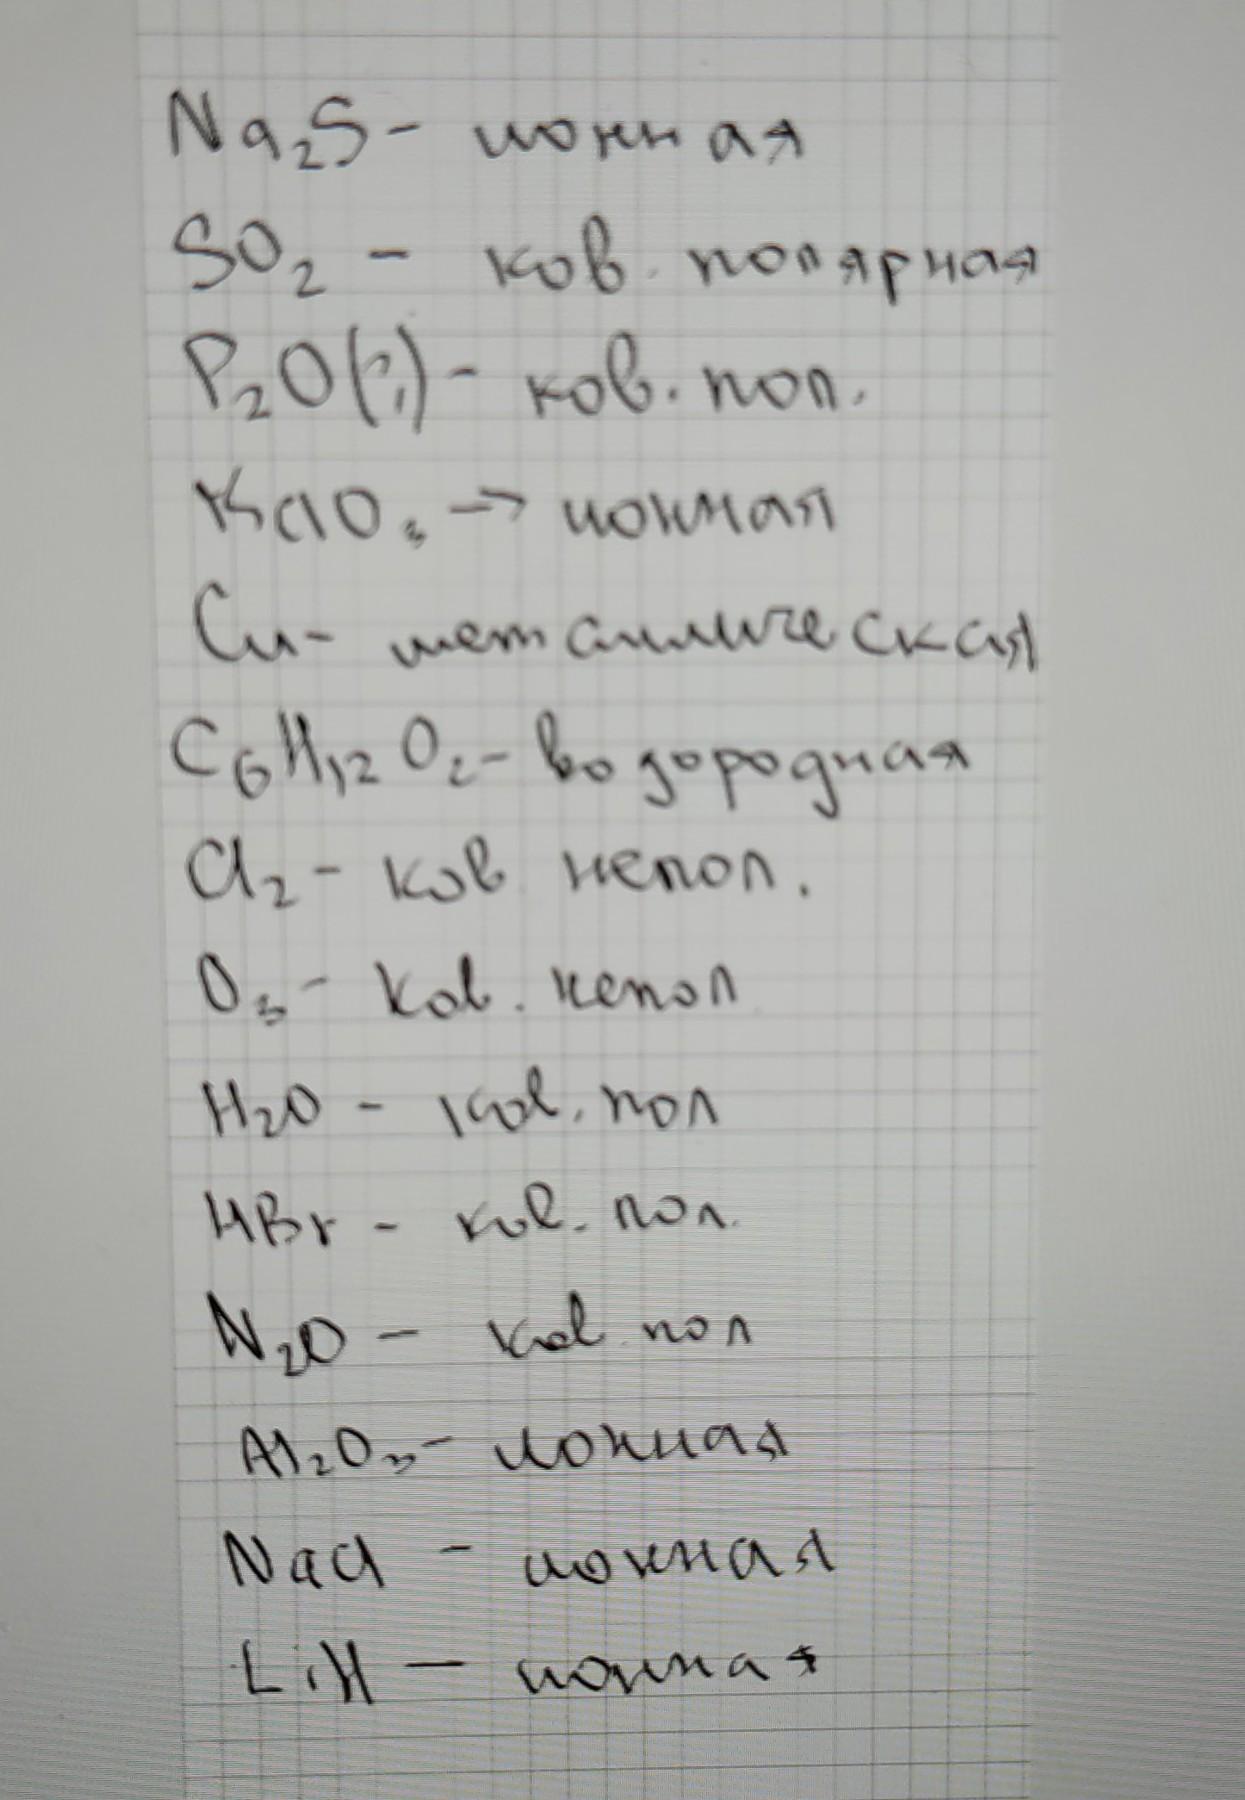 Na₂S - ионная
SO₂ - ков. полярная
P₂O(?) - ков. пол.
KClO₃ → ионная
Cu - металлическая
C₆H₁₂O₂ - водородная
Cl₂ - ков непол.
O₃ - ков. непол
H₂O - ков. пол
HBr - ков. пол.
N₂O - ков пол
Al₂O₃ - ионная
NaCl - ионная
LiH - ионная